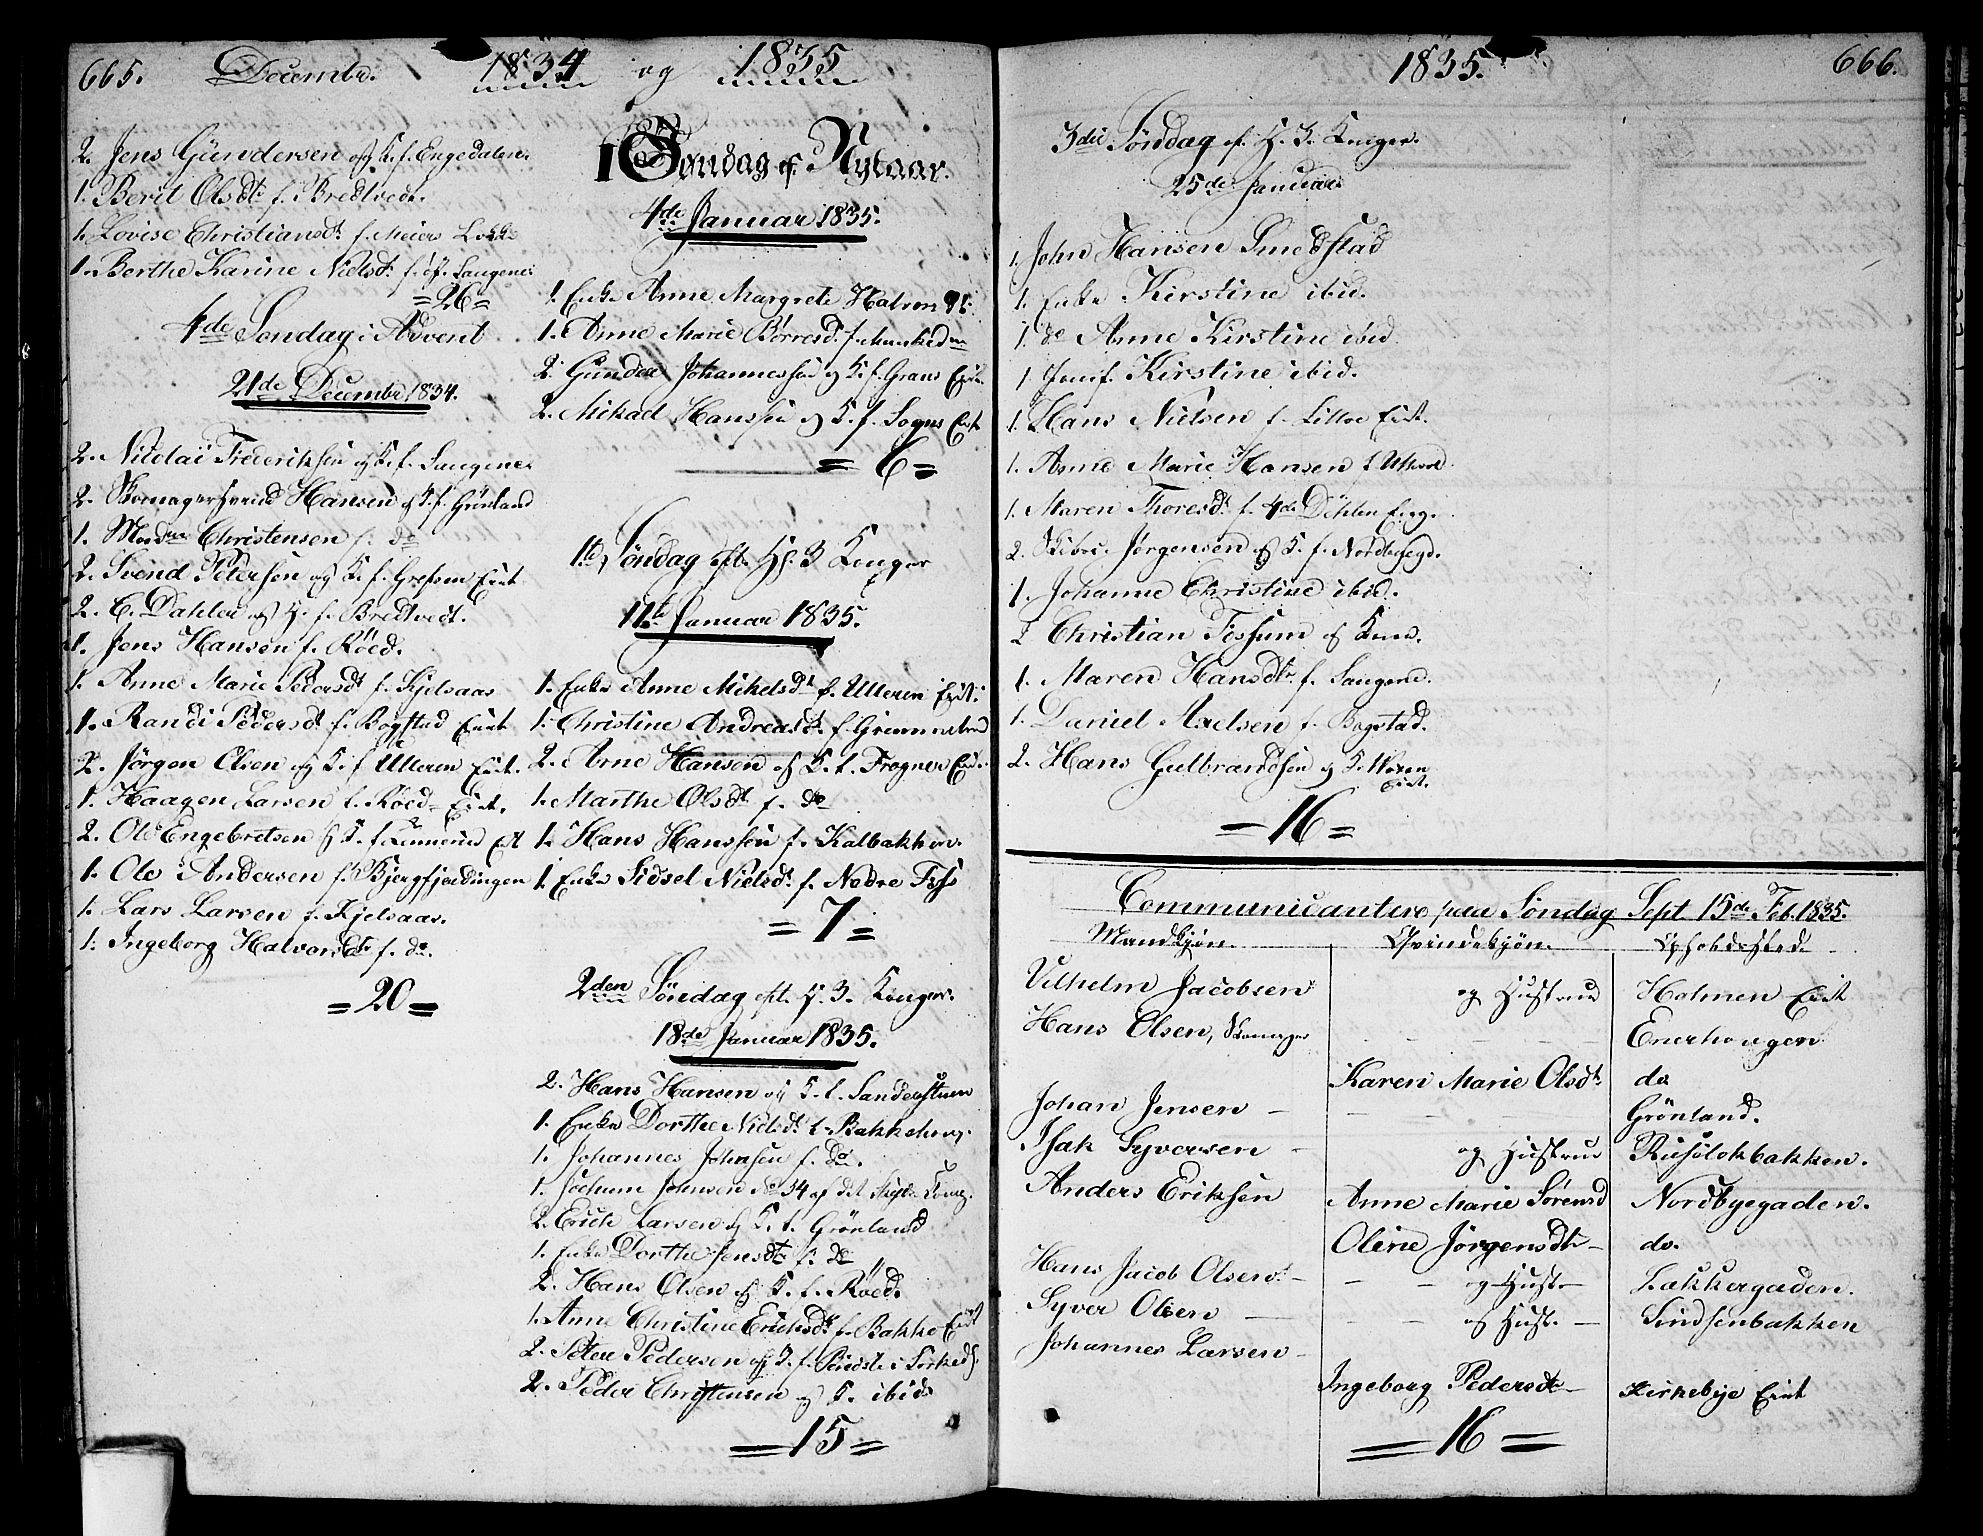 665. Decembr. 1834 og 1835
2. Jens Gündersen og K. f. Engedalen.
1. Berit Olsdt. f. Bredtvedt.
1. Lovise Christiansdt. f. Meiers Løkke
1. Berthe Karine Nielsdt. f. Saugene
=26=
4de Søndag i Advent
21de Decembr 1834.
2. Nicolai Frederiksen og K. f. Saugene.
2. Skomagersvend Hansen og K. f. Grönland
1. Madme Christensen f. do
2. Svend Pedersen og K. f. Grefsen Eiet.
2. C. Dahler og H. f. Bredtvedt.
1. Jens Hansen f. Röed.
1. Anne Marie Pedersdt. f. Kjelsaas
1. Randi Pedersdt. f. Bogstad Eiet
2. Jörgen Olsen og K. f. Ulleren Eiet.
1. Haagen Larsen f. Röed Eiet.
2. Ole Engebretsen og K. f. Linnerud Eet
1. Ole Andersen f. Bjergfjerdingen
1. Lars Larsen f. Kjelsaas.
1. Ingeborg Halvorsdt. f. do.
=20=
1 Søndag ef. Nytaar.
4de Januar 1835.
1. Enke Anne Margrete
1. Anne Marie Börresdt. f.
2. Gunder Johannessen og K. f. Graus Eie
2. Mikael Hanssen og K. f. Sogns Eiet
=6=
1te Søndag eft. H. 3 Konger
11te Januar 1835.
1. Enke Anne Mikelsdt. f. Ulleren Eiet.
1. Christine Andreasdt. f.
2. Arne Hansen og K. f. Frogner Eie.
1. Marthe Olsdt. f. do
1. Hans Hanssen f. Kalbakken.
1. Enke Sidsel Nielsdt. f. Nedre Foss
=7=
2den Søndag eft. H. 3. Konger.
18de Januar 1835.
2. Hans Hansen og K. f. Sanderstuen
1. Enke Dorthe Nielsdt. f. Bakkehoug.
1. Johannes Johnsen f. do.
1. Jochum Johnsen No 34 af det
2. Erich Larsen og K. f. Grönland
1. Enke Dorthe Jensdt. f. do
2. Hans Olsen og K. f. Röed.
1. Anne Christine Erichsdt. f. Bakke Eiet
2. Peter Pedersen og K. f. i Sörked.
2. Peder Christensen og K. ibid.
=15=
1835. 666.
3die Søndag ef. H. 3. Konger.
25de Januar
1. John Hansen Smedstad
1. Enke Kirstine ibid.
1. do Anne Kirstine ibid
1. Jomf. Kirstine ibid.
1. Hans Nielsen f. Lilloe Eiet.
1. Anne Marie Hansen f.
1. Maren Thoresdt. f. 4de Döhlen Eieg.
2. Jörgensen og K. f. Nordbyegd.
1. Johanne Christine ibid.
2 Christian Fossum og Kone.
1. Maren Hansdtr f. Saugene.
1. Daniel Axelsen f. Bogstad.
2. Hans Gulbrandsen og K. Eiet.
=16=
Communicantere paa Søndag Sept. 15de Feb. 1835.
Mandkjøn. Qvindekjön. Opholdssted.
Vilhelm Jacobsen og Hustrue Holmen Eiet
Hans Olsen, Skomager - - - Enerhougen
Karen Marie Olsdt. do
Johan Jensen - - - Grönland.
Isak Syversen - og Hustrue Ruseløkbakken.
Anders Eriksen Anne Marie Sörensd Nordbyegaden.
Oline Jörgensdt - do.
Hans Jacob Olsen - - - og Hust - Lakkergaden.
Syver Olsen - - - og Hust. - Sindsenbakken
Johannes Larsen -
Ingeborg Pedersdt - Kirkebye Eiet
=16=